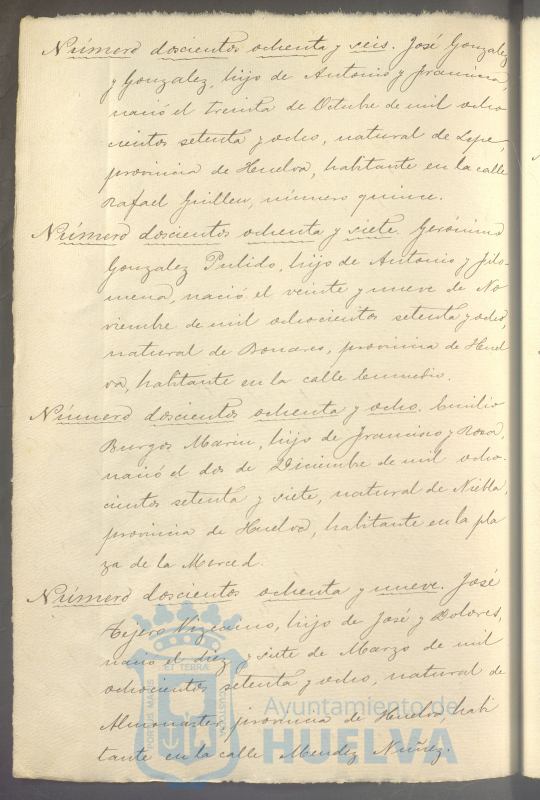 Número doscientos ochenta y seis. José Gonzalez
y Gonzalez, hijo de Antonio y Francisca,
nació el treinta de Octubre de mil ocho
cientos setenta y ocho, natural de Lepe,
provincia de Huelva, habitante en la calle
Rafael Guillen, número quince.
Número doscientos ochenta y siete. Gerónimo
Gonzalez Pulido, hijo de Antonio y Filo-
mena, nació el veinte y nueve de No
viembre de mil ochocientos setenta y ocho,
natural de Bonares, provincia de Huel
va, habitante en la calle Enmedio.
Número doscientos ochenta y ocho. Emilio
Burgos Marin, hijo de Francisco y Rosa,
nació el dos de Diciembre de mil ocho-
cientos setenta y siete, natural de Niebla,
provincia de Huelva, habitante en la pla
za de la Merced.
Número doscientos ochenta y nueve. José
Tejero Vizcaino, hijo de José y Dolores,
nació el diez y siete de Marzo de mil
ochocientos setenta y ocho, natural de
Almonaster, provincia de Huelva, habi
tante en la calle Mendez Nuñez.
PORTUS MARIS ET TERRAE CUSTODIA
Ayuntamiento de
HUELVA